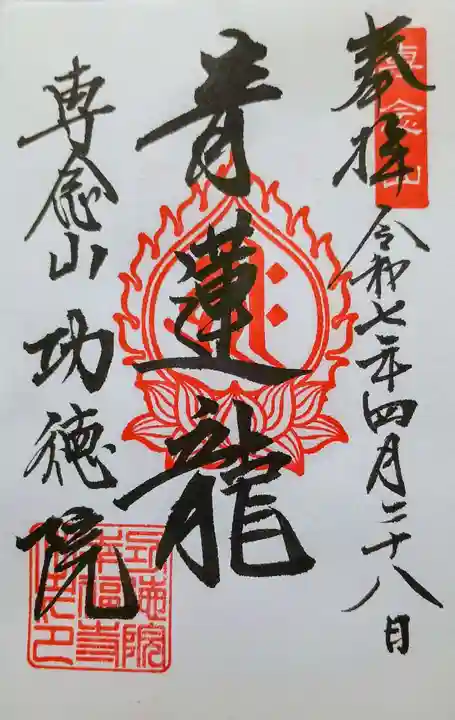 奉拝
専念山
令和七年四月二十八日
青蓮龍
専念山 功徳院